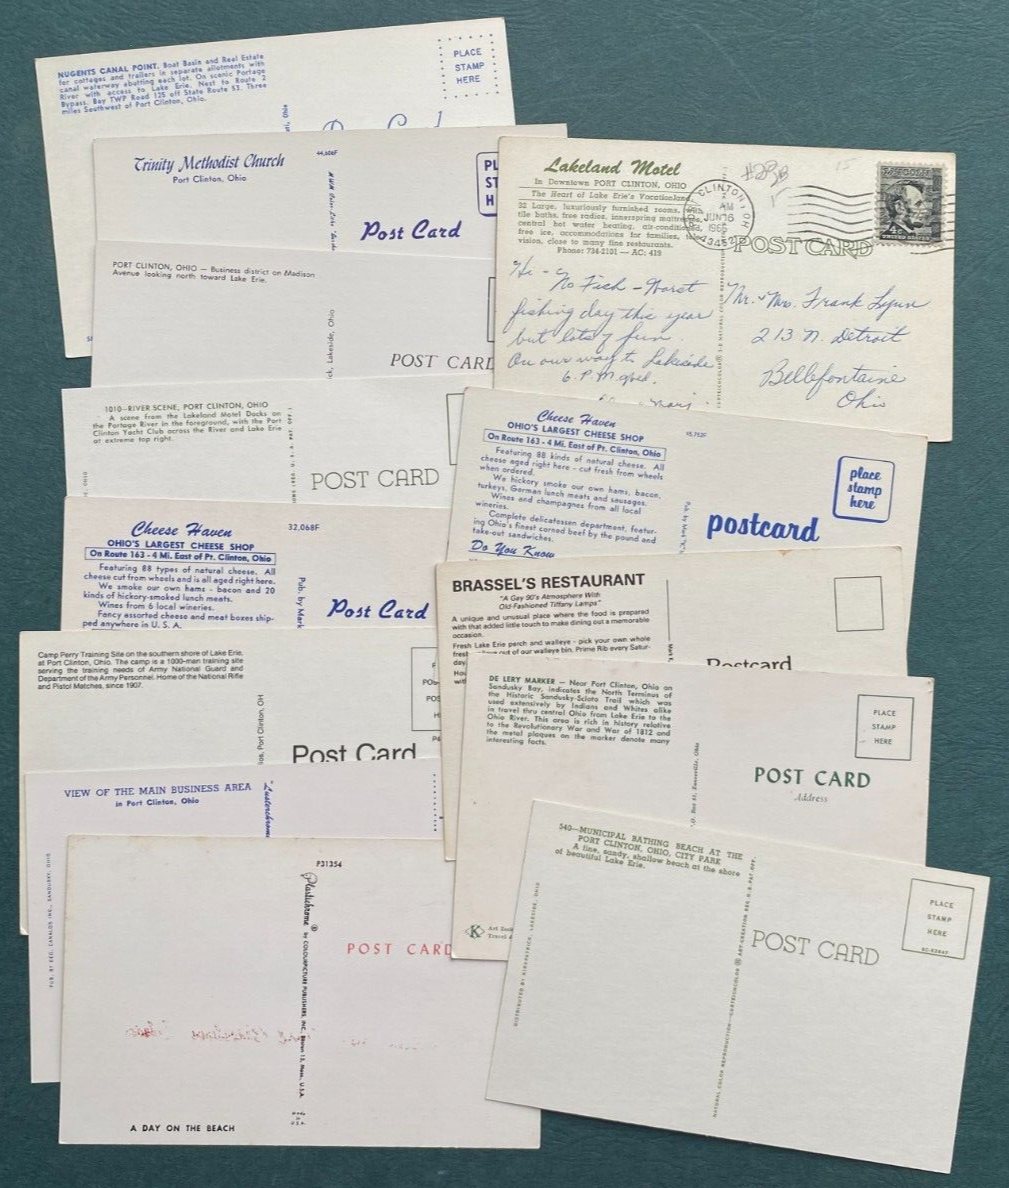 NUGENTS CANAL POINT. Boat Basin and Real Estate
for cottages and trailers in separate allotments with
canal waterway abutting each lot. On scenic Portage
River with access to Lake Erie. Next to Route 2
Bypass. Bay TWP Road 125 off State Route 53. Three
miles Southwest of Port Clinton, Ohio.
PLACE
STAMP
HERE
Trinity Methodist Church
Port Clinton, Ohio
PL
ST
H
Post Card
PORT CLINTON, OHIO — Business district on Madison
Avenue looking north toward Lake Erie.
ck, Lakeside, Ohio
POST CARD
1010—RIVER SCENE, PORT CLINTON, OHIO
A scene from the Lakeland Motel Docks on
the Portage River in the foreground, with the Port
Clinton Yacht Club across the River and Lake Erie
at extreme top right.
POST CARD
Cheese Haven
OHIO'S LARGEST CHEESE SHOP
On Route 163 - 4 Mi. East of Pt. Clinton, Ohio
Featuring 88 types of natural cheese. All
cheese cut from wheels and is all aged right here.
We smoke our own hams - bacon and 20
kinds of hickory-smoked lunch meats.
Wines from 6 local wineries.
Fancy assorted cheese and meat boxes ship-
ped anywhere in U. S. A.
32,068F
Pub. by Mark
Post Card
Camp Perry Training Site on the southern shore of Lake Erie,
at Port Clinton, Ohio. The camp is a 1000-man training site
serving the training needs of Army National Guard and
Department of the Army Personnel. Home of the National Rifle
and Pistol Matches, since 1907.
ios, Port Clinton, OH
Post Card
VIEW OF THE MAIN BUSINESS AREA
in Port Clinton, Ohio
"Lusterchrome
PUB. BY GEO. CANALOS INC., SANDUSKY, OHIO
P31354
Plastichrome ® by COLOURPICTURE PUBLISHERS, INC., Boston 15, Mass., U.S.A.
POST CARD
A DAY ON THE BEACH
Lakeland Motel
In Downtown PORT CLINTON, OHIO
The Heart of Lake Erie's Vacationland
32 Large, luxuriously furnished rooms, with
tile baths, free radios, innerspring mattresses,
central hot water heating, air-conditioned,
free ice, accommodations for families,
vision, close to many fine restaurants.
Phone: 734-2101 — AC: 419
PORT CLINTON OH
AM
JUN 16
4c
UNITED STATES
POST CARD
Hi - No Fish - Worst
fishing day this year
but lots of fun.
On our way to Lakeside
6 P.M.
Mr. & Mrs. Frank Lynn
213 N. Detroit
Bellefontaine
Ohio
Cheese Haven
OHIO'S LARGEST CHEESE SHOP
On Route 163 - 4 Mi. East of Pt. Clinton, Ohio
Featuring 88 kinds of natural cheese. All
cheese aged right here - cut fresh from wheels
when ordered.
We hickory smoke our own hams, bacon,
turkeys, German lunch meats and sausages.
Wines and champagnes from all local
wineries.
Complete delicatessen department, featur-
ing Ohio's finest corned beef by the pound and
take-out sandwiches.
Do You Know
place
stamp
here
postcard
BRASSEL'S RESTAURANT
"A Gay 90's Atmosphere With
Old-Fashioned Tiffany Lamps"
A unique and unusual place where the food is prepared
with that added little touch to make dining out a memorable
occasion.
Fresh Lake Erie perch and walleye - pick your own whole
out of our walleye bin. Prime Rib every Satur-
day
Postcard
DE LERY MARKER — Near Port Clinton, Ohio on
Sandusky Bay, indicates the North Terminus of
the Historic Sandusky-Scioto Trail which was
used extensively by Indians and Whites alike
in travel thru central Ohio from Lake Erie to the
Ohio River. This area is rich in history relative
to the Revolutionary War and War of 1812 and
the metal plaques on the marker denote many
interesting facts.
PLACE
STAMP
HERE
POST CARD
Address
K
540—MUNICIPAL BATHING BEACH AT THE
PORT CLINTON, OHIO, CITY PARK
A fine, sandy, shallow beach at the shore
of beautiful Lake Erie.
DISTRIBUTED BY KIRKPATRICK, LAKESIDE, OHIO
PLACE
STAMP
HERE
POST CARD